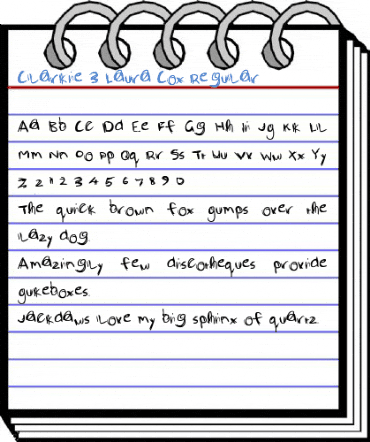 Clarkie 3 Laura Cox Regular
Aa Bb Cc Dd Ee Ff Gg Hh Ii Jg Kk Ll
Mm Nn Oo Pp Qq Rr Ss Tt Uu Vv Ww Xx Yy
Zz 1 2 3 4 5 6 7 8 9 0
The quick brown fox gumps over the
lazy dog.
Amazingly few discotheques provide
gukeboxes.
Jackdaws ilove my big sphinx of quartz.